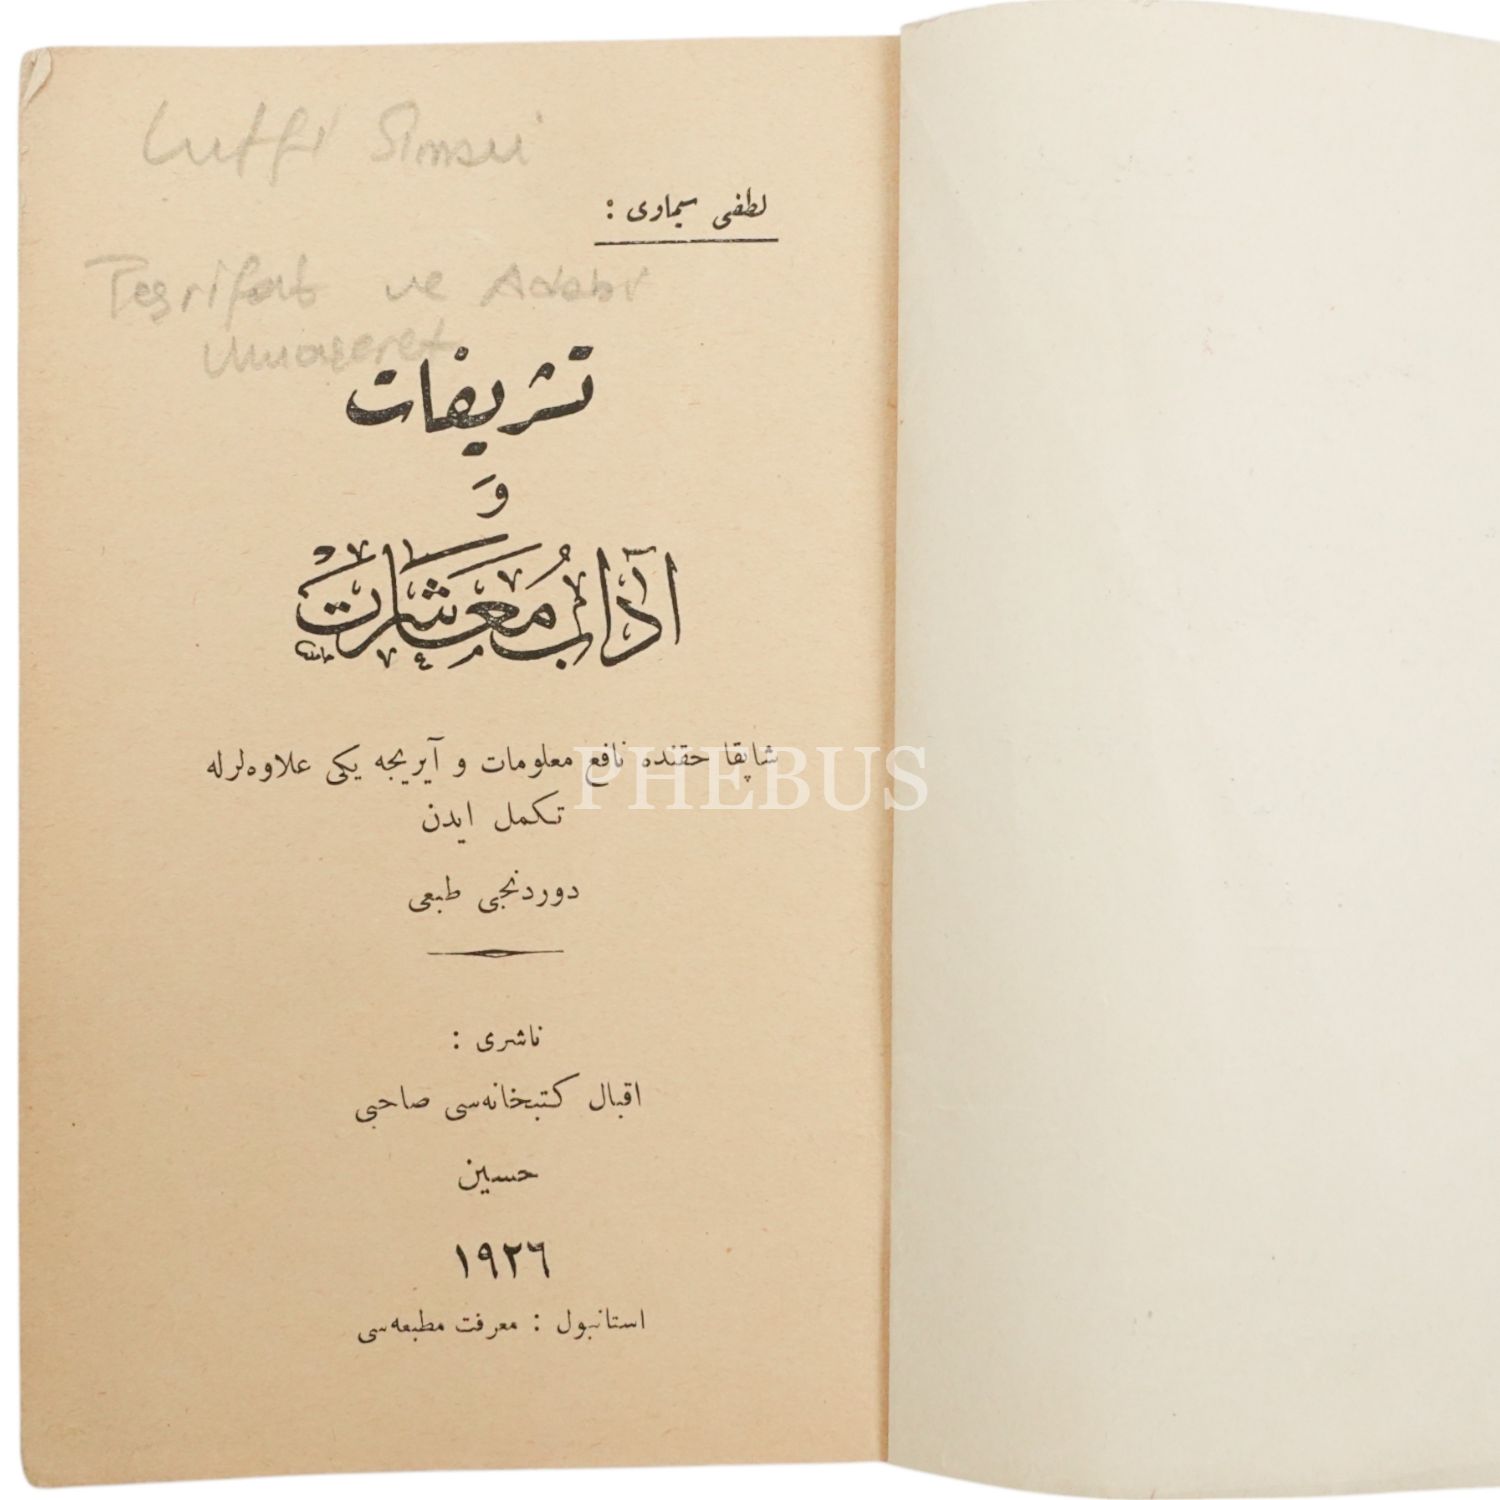 Lutfi Simavi
لطفی سیماوی :
Teşrifat ve Adabı
Muaşeret
تشریفات
و
آداب معاشرت
شاپقا حقنده نافع معلومات و آیریجه یکی علاوه‌لرله
تکمل ایدن
PHEBUS
دوردنجی طبعی
ناشری :
اقبال کتبخانه‌سی صاحبی
حسین
١٩٢٦
استانبول : معرفت مطبعه‌سی